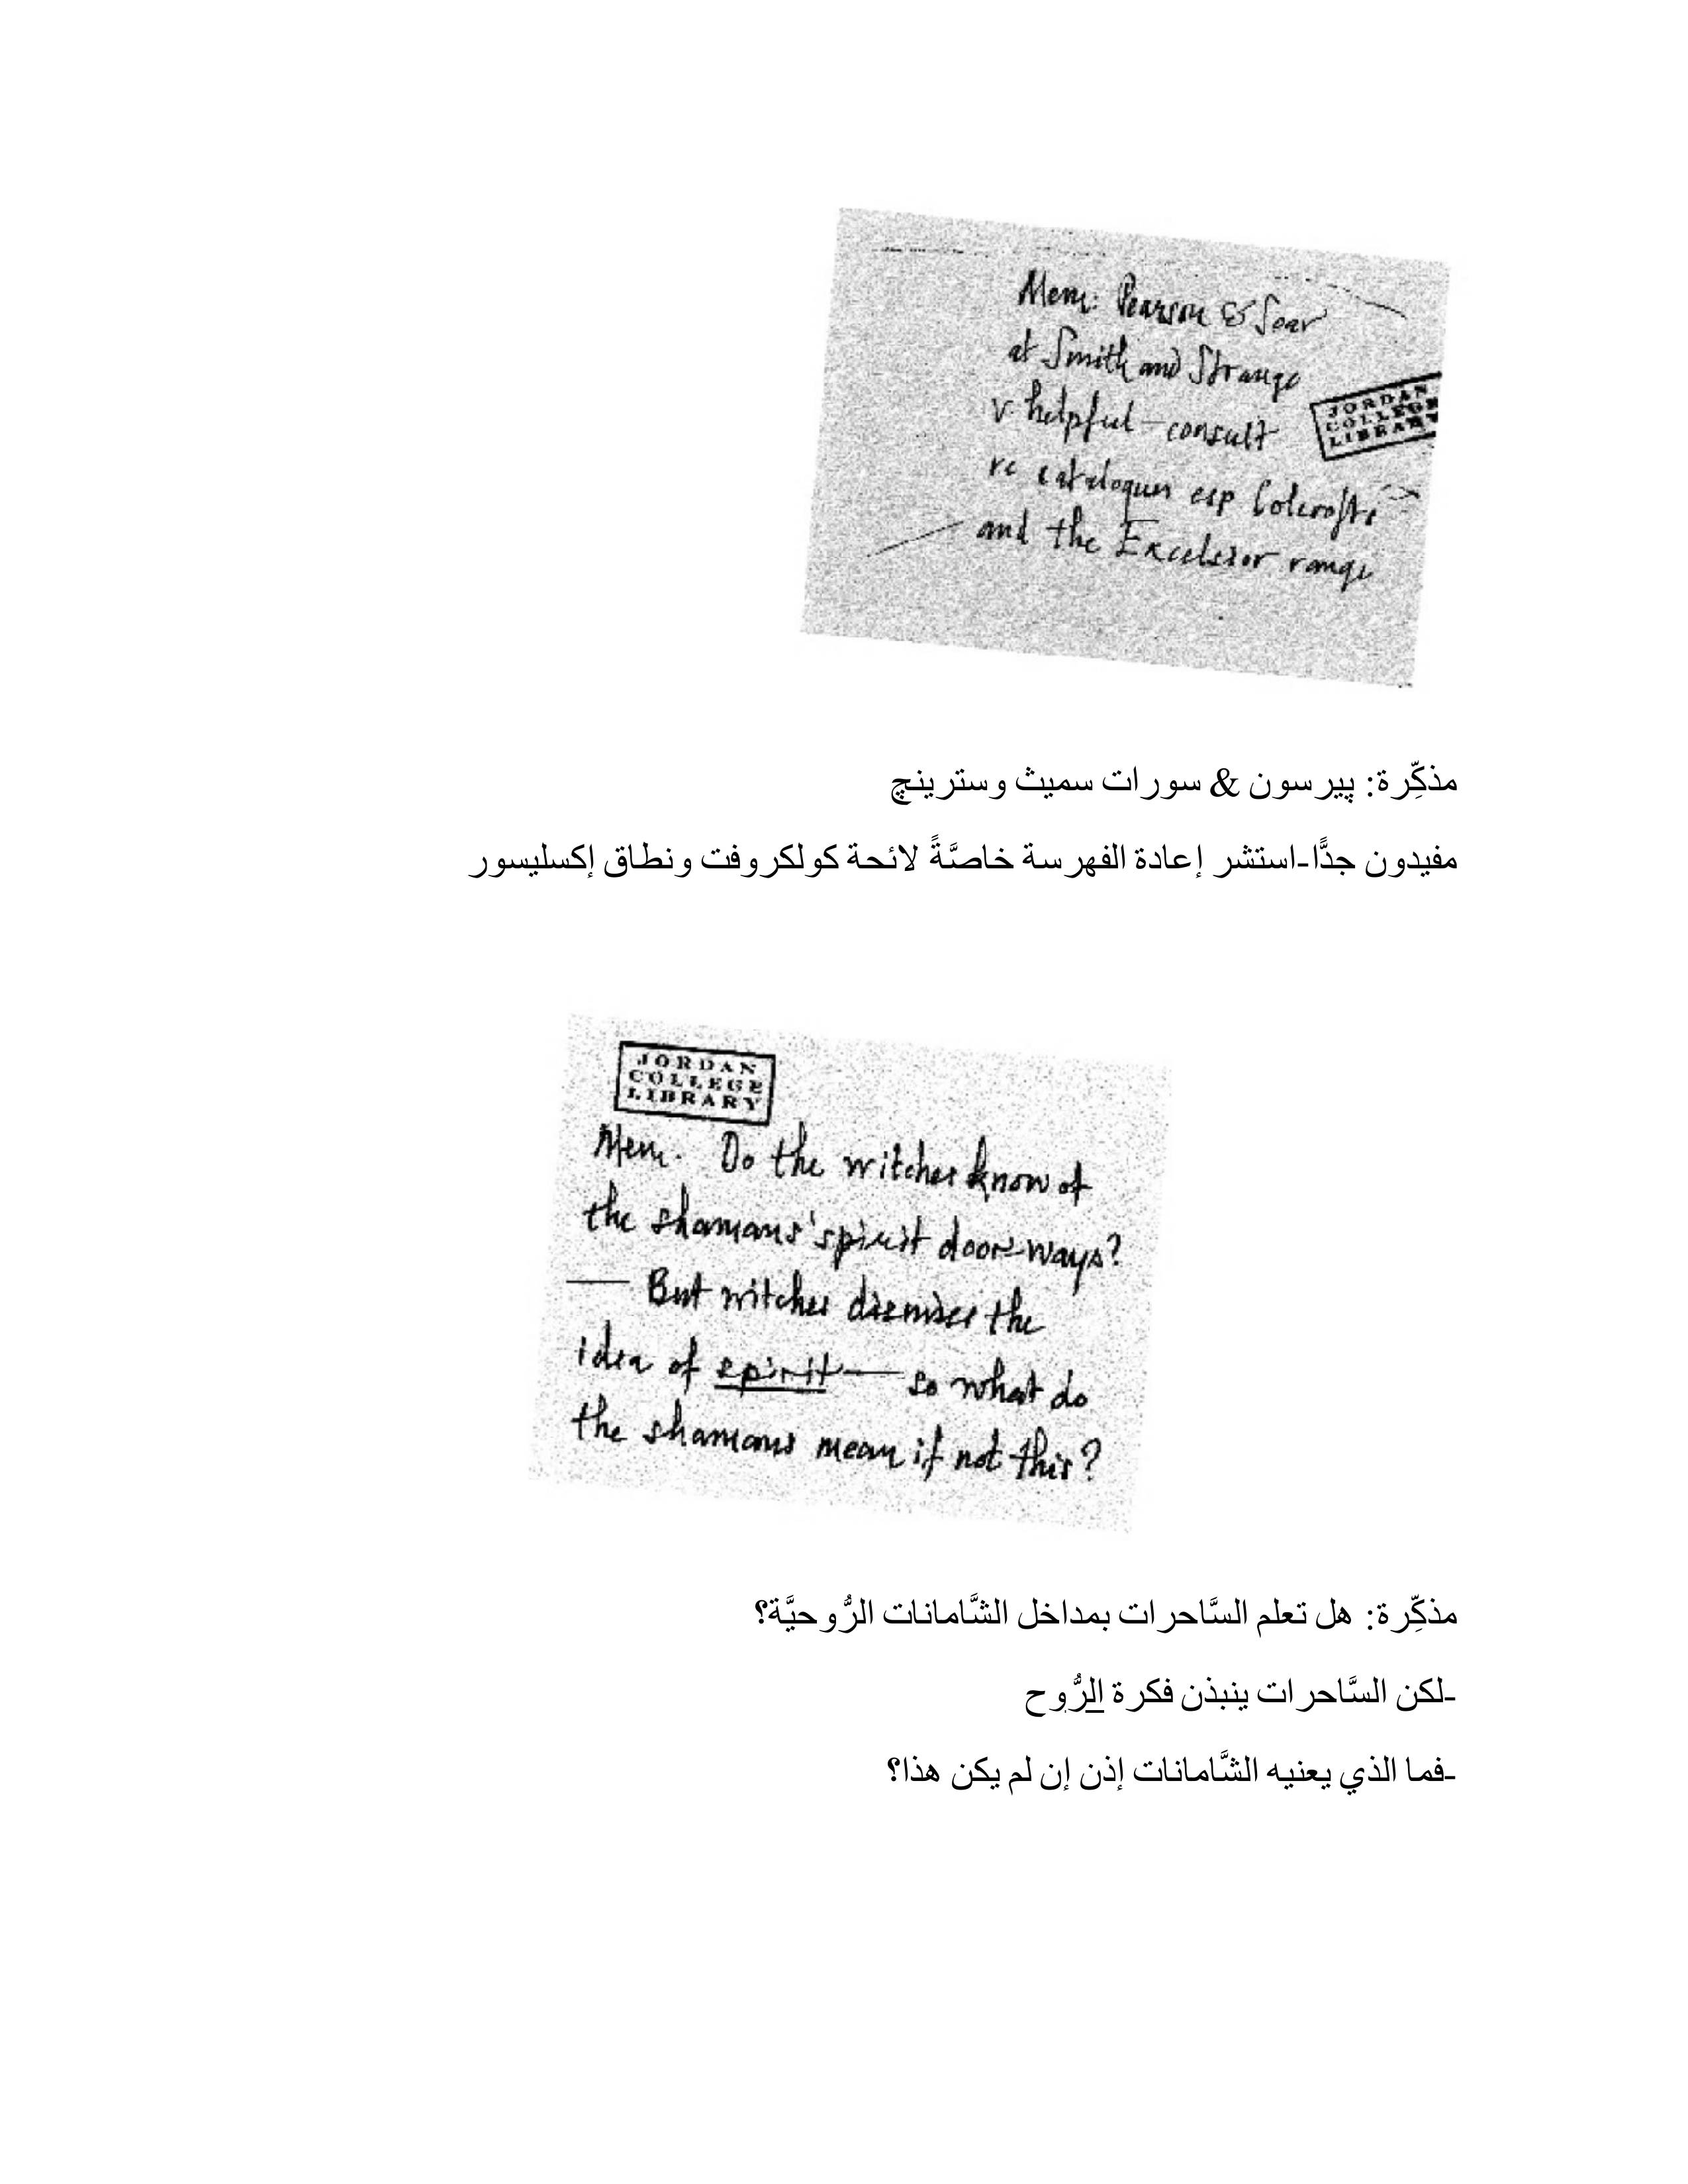 Mem: Pearson & Soar
at Smith and Strange
v. helpful – consult
re catalogues esp Colcrofts
and the Excelsior range
JORDAN
COLLEGE
LIBRARY
مذكِّرة: پيرسون & سورات سميث وسترينچ
مفيدون جدًّا-استشر إعادة الفهرسة خاصَّةً لائحة كولكروفت ونطاق إكسليسور
JORDAN
COLLEGE
LIBRARY
Mem. Do the witches know of
the shamans' spirit door-ways?
— But witches dismiss the
idea of spirit — so what do
the shamans mean if not this?
مذكِّرة: هل تعلم السَّاحرات بمداخل الشَّامانات الرُّوحيَّة؟
-لكن السَّاحرات ينبذن فكرة الرُّوح
-فما الذي يعنيه الشَّامانات إذن إن لم يكن هذا؟